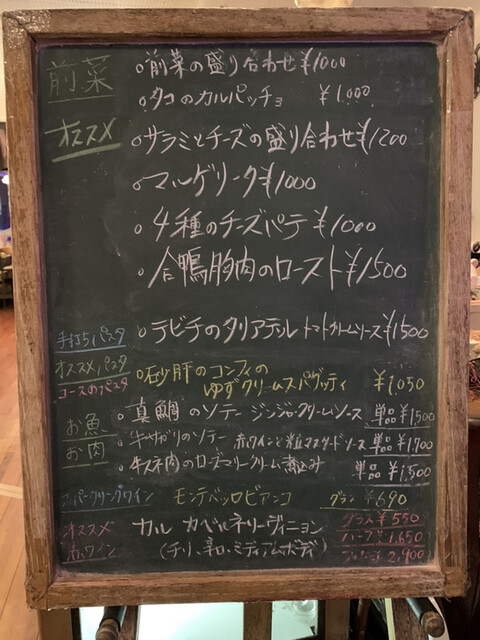 前菜
○前菜の盛り合わせ¥1000
○タコのカルパッチョ ¥1,000
オススメ ○サラミとチーズの盛り合わせ¥1200
○マルゲリータ¥1000
○4種のチーズパテ¥1000
○合鴨胸肉のロースト¥1500
手打ちパスタ ○テビチのタリアテレ トマトクリームソース¥1500
オススメパスタ ○砂肝のコンフィの
コースのパスタ ゆずクリームスパゲッティ ¥1,050
お魚 ○真鯛のソテー ジンジャークリームソース 単品¥1,500
お肉 ○牛サガリのソテー 赤ワインと粒マスタードソース 単品¥1,700
○牛スネ肉のローズマリークリーム煮込み 単品¥1,500
スパークリングワイン モンテベッロビアンコ グラス ¥690
オススメ カル カベルネソーヴィニヨン グラス ¥550
赤ワイン (チリ、辛口・ミディアムボディ) ハーフ 1,650
2,900